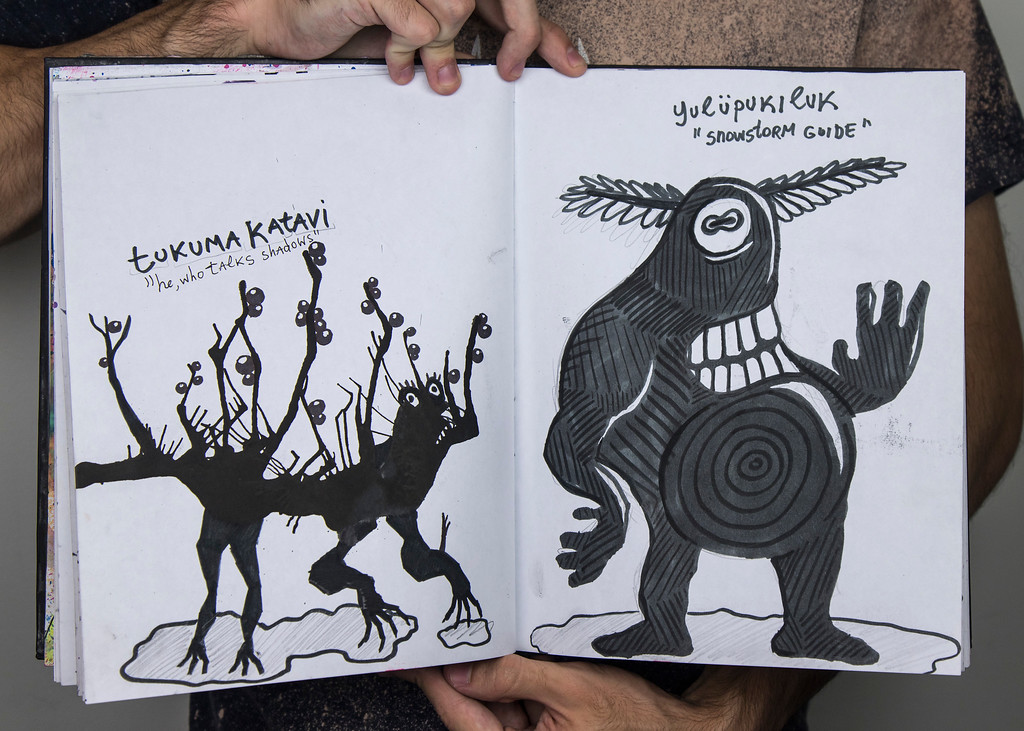 tukuma katavi
"he, who talks shadows"
yulüpukiluk
"snowstorm guide"